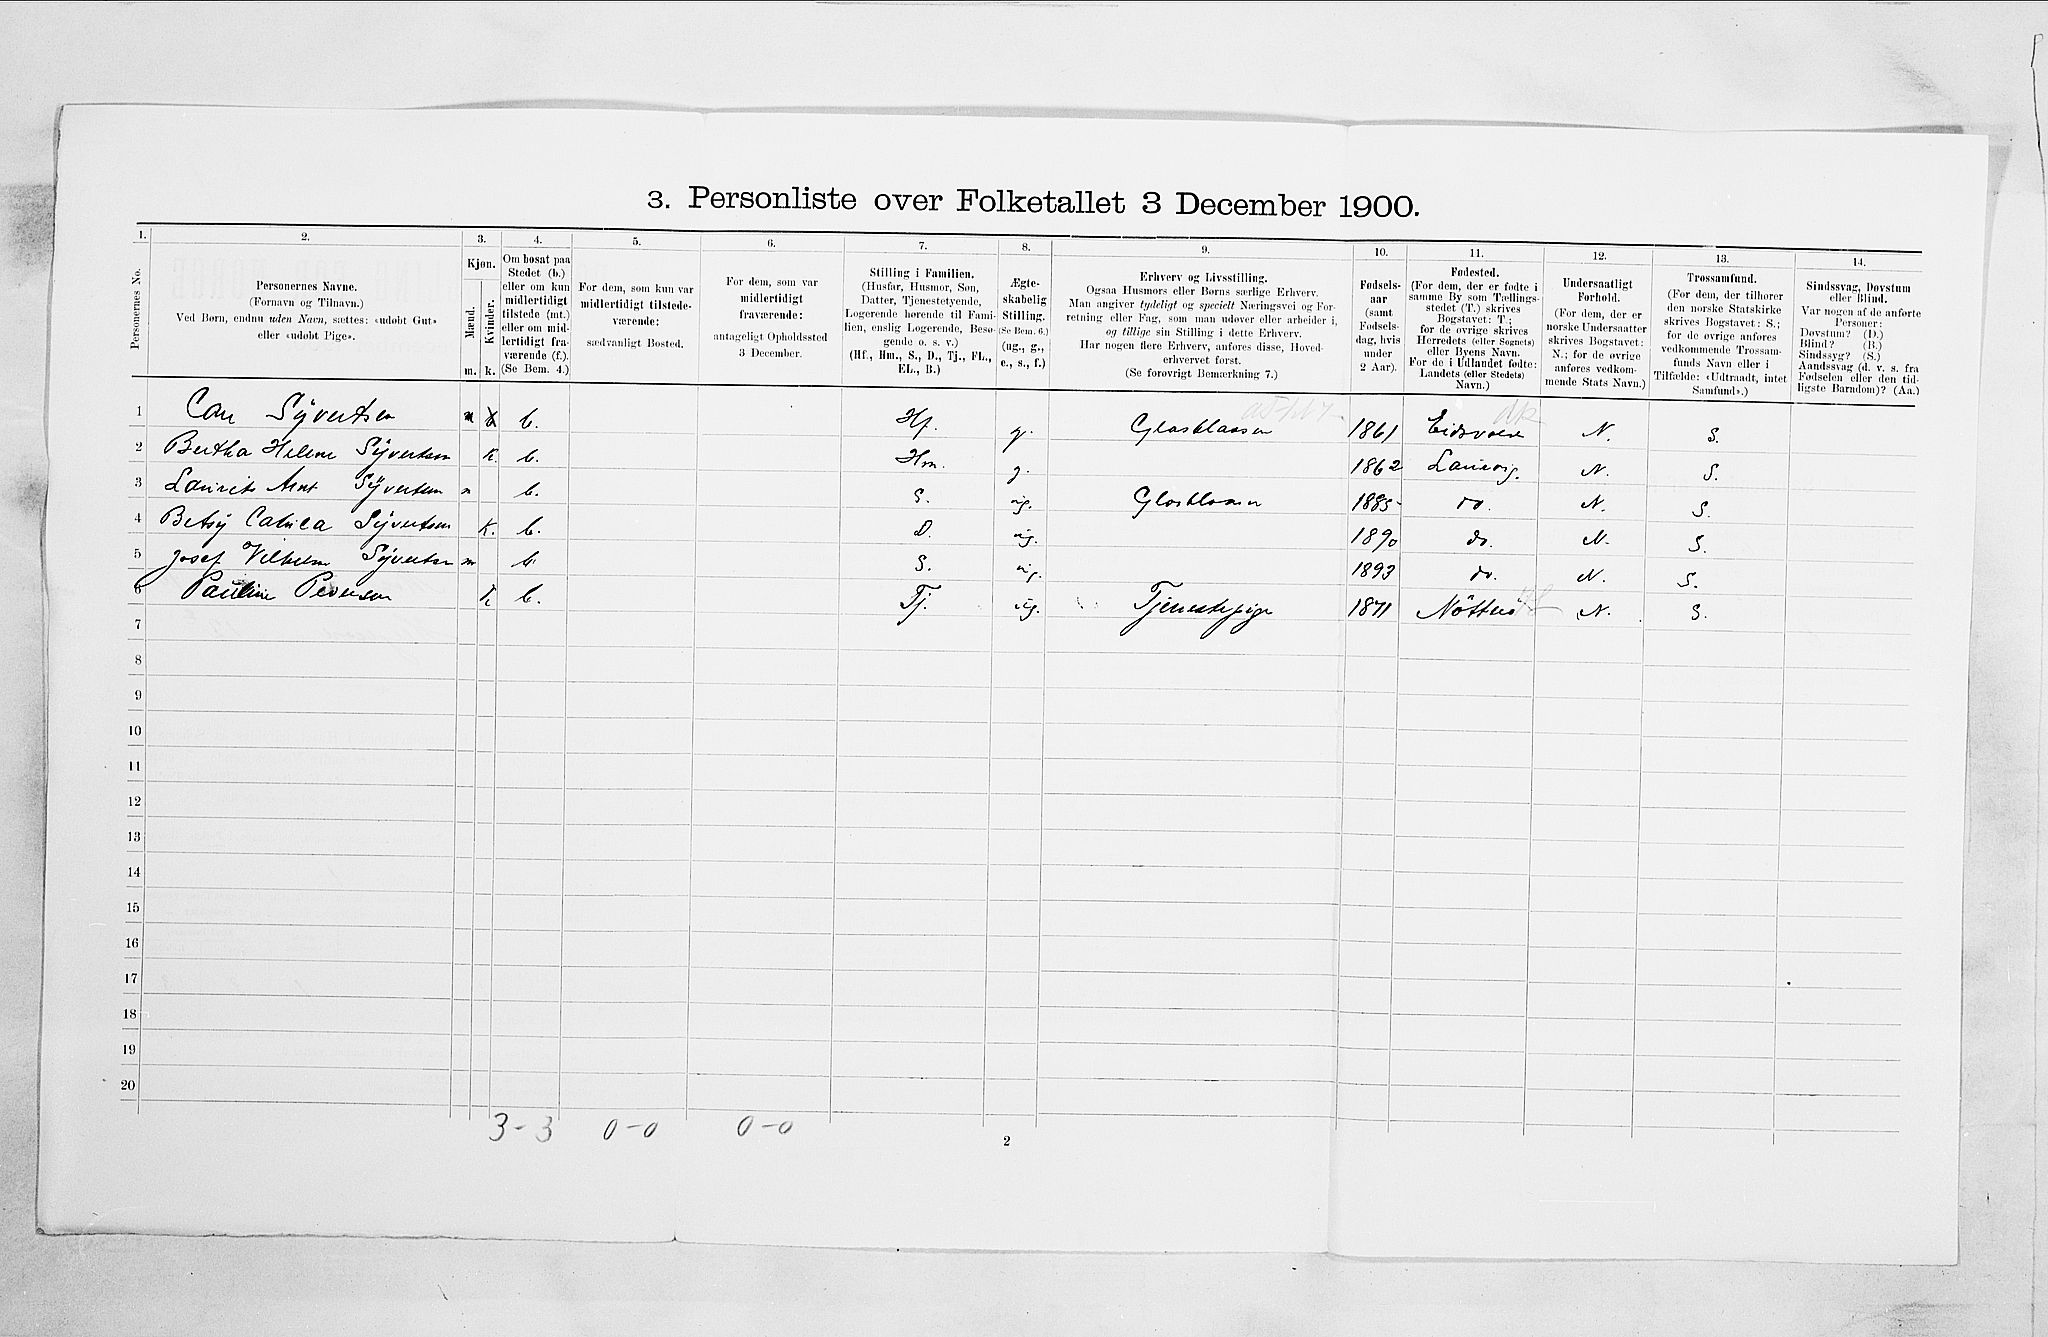 3. Personliste over Folketallet 3 December 1900.
1. 2. 3. 4. 5. 6. 7. 8. 9. 10. 11. 12. 13. 14.
Personernes No.
Personernes Navne.
(Fornavn og Tilnavn.)
Ved Børn, endnu uden Navn, sættes: «udøbt Gut»
eller «udøbt Pige».
Kjøn.
Mænd.
Kvinder.
m. k.
Om bosat paa
Stedet (b.)
eller om kun
midlertidigt
tilstede (mt.)
eller om mid-
lertidigt fra-
værende (f.).
(Se Bem. 4.)
For dem, som kun var
midlertidigt tilstede-
værende:
sædvanligt Bosted.
For dem, som var
midlertidigt
fraværende:
antageligt Opholdssted
3 December.
Stilling i Familien.
(Husfar, Husmor, Søn,
Datter, Tjenestetyende,
Logerende hørende til Fami-
lien, enslig Logerende, Besø-
gende o. s. v.)
(Hf., Hm., S., D., Tj., FL.,
EL., B.)
Ægte-
skabelig
Stilling.
(Se Bem. 6.)
(ug., g.,
e., s., f.)
Erhverv og Livsstilling.
Ogsaa Husmors eller Børns særlige Erhverv.
Man angiver tydeligt og specielt Næringsvei og For-
retning eller Fag, som man udøver eller arbeider i,
og tillige sin Stilling i dette Erhverv.
Har nogen flere Erhverv, anføres disse, Hoved-
erhvervet først.
(Se forøvrigt Bemærkning 7.)
Fødsels-
aar
(samt
Fødsels-
dag, hvis
under
2 Aar).
Fødested.
(For dem, der er fødte i
samme By som Tællings-
stedet (T.) skrives
Bogstavet: T.;
for de øvrige skrives
Herredets (eller Sognets)
eller Byens Navn.
For de i Udlandet fødte:
Landets (eller Stedets)
Navn.)
Undersaatligt
Forhold.
(For dem, der er
norske Undersaatter
skrives Bogstavet:
N.; for de øvrige
anføres vedkom-
mende Stats Navn.)
Trossamfund.
(For dem, der tilhører
den norske Statskirke
skrives Bogstavet: S.;
for de øvrige anføres
vedkommende Trossam-
funds Navn eller i
Tilfælde: «Udtraadt, intet
Samfund».)
Sindssvag, Døvstum
eller Blind.
Var nogen af de anførte
Personer:
Døvstum? (D.)
Blind? (B.)
Sindssyg? (S.)
Aandssvag (d. v. s. fra
Fødselen eller den tid-
ligste Barndom)? (Aa.)
1 Carl Syvertsen m b. Hf. g. 1861 Eidsvold N. S.
2 Bertha Helene Syvertsen K. b. Hm. g. 1862 Laurvig. N. S.
3 Laurits Arnt Syvertsen m b. S. ug. 1885 do. N. S.
4 Betsy Syvertsen K. b. D. ug. 1890 do. N. S.
5 Josef Vilhelm Syvertsen m b. S. ug. 1893 do. N. S.
6 Pauline Pedersen K b. Tj. ug. Tjenestepige 1871 Nötterö N. S.
7
8
9
10
11
12
13
14
15
16
17
18
19
20
3-3 0-0 0-0
2